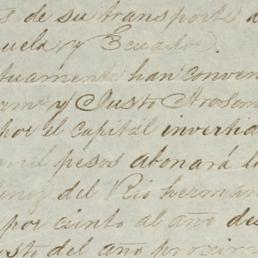 s de su transporte a
uela y Ecuador.
tuamente han conven
erm⁰ y Justo Arosem
por el capital invertid
mil pesos abonará la
unoz del Rio herman
por ciento al año des
osto del año proxim